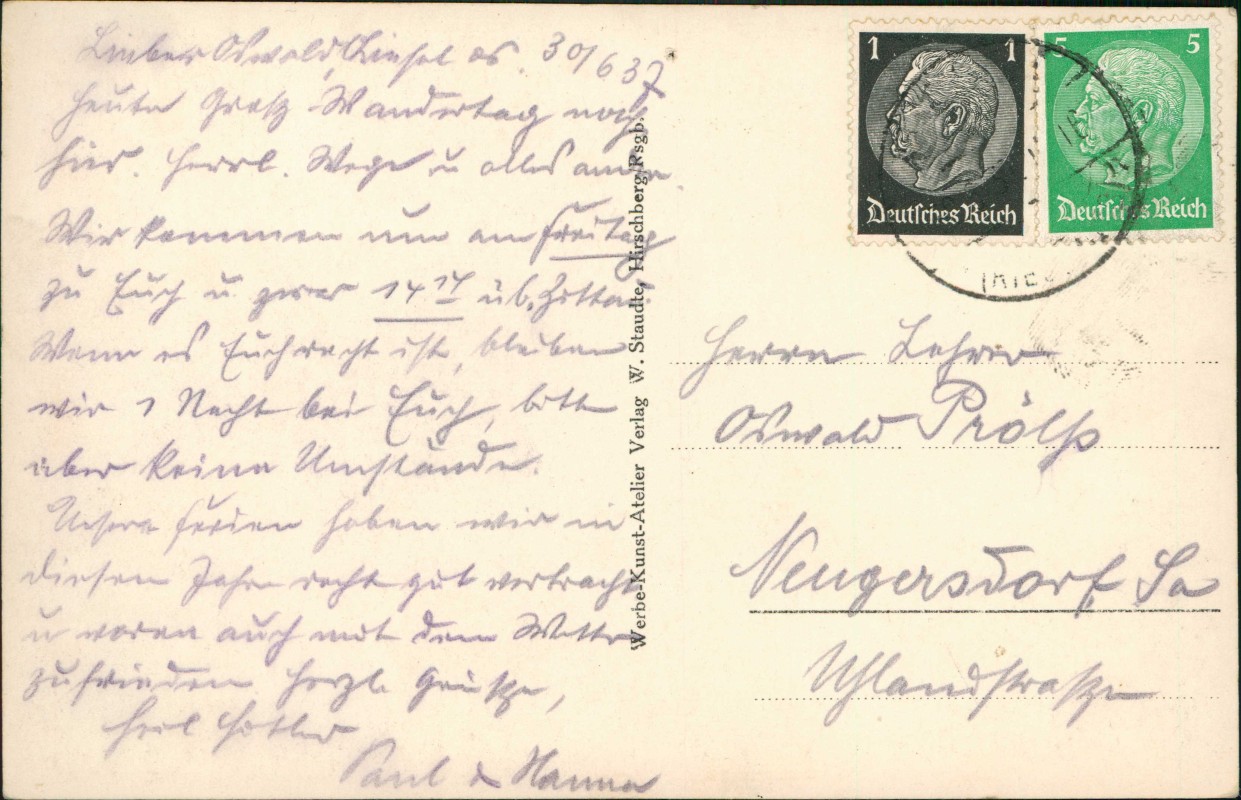 Lieber Oswald, Liesel es. 30/6 37
heute Groß-Wandertag nach
hier. Herrl. Wege u alles andere.
Wir kommen nun am Freitag
zu Euch u zwar 14 14 üb. Zittau.
Wenn es Euch recht ist, bleiben
wir 1 Nacht bei Euch, bitte
aber keine Umstände.
Unsere Ferien haben wir in
diesem Jahre recht gut verbracht
u waren auch mit dem Wetter
zufrieden Herzl. Grüße,
Heil Hitler
Paul & Hanna
Werbe-Kunst-Atelier Verlag W. Staudte, Hirschberg/Rsgb.
1 1
Deutsches Reich
5 5
Deutsches Reich
Herrn Lehrer
Oswald Prölß
Neugersdorf Sa
Uhlandstraße